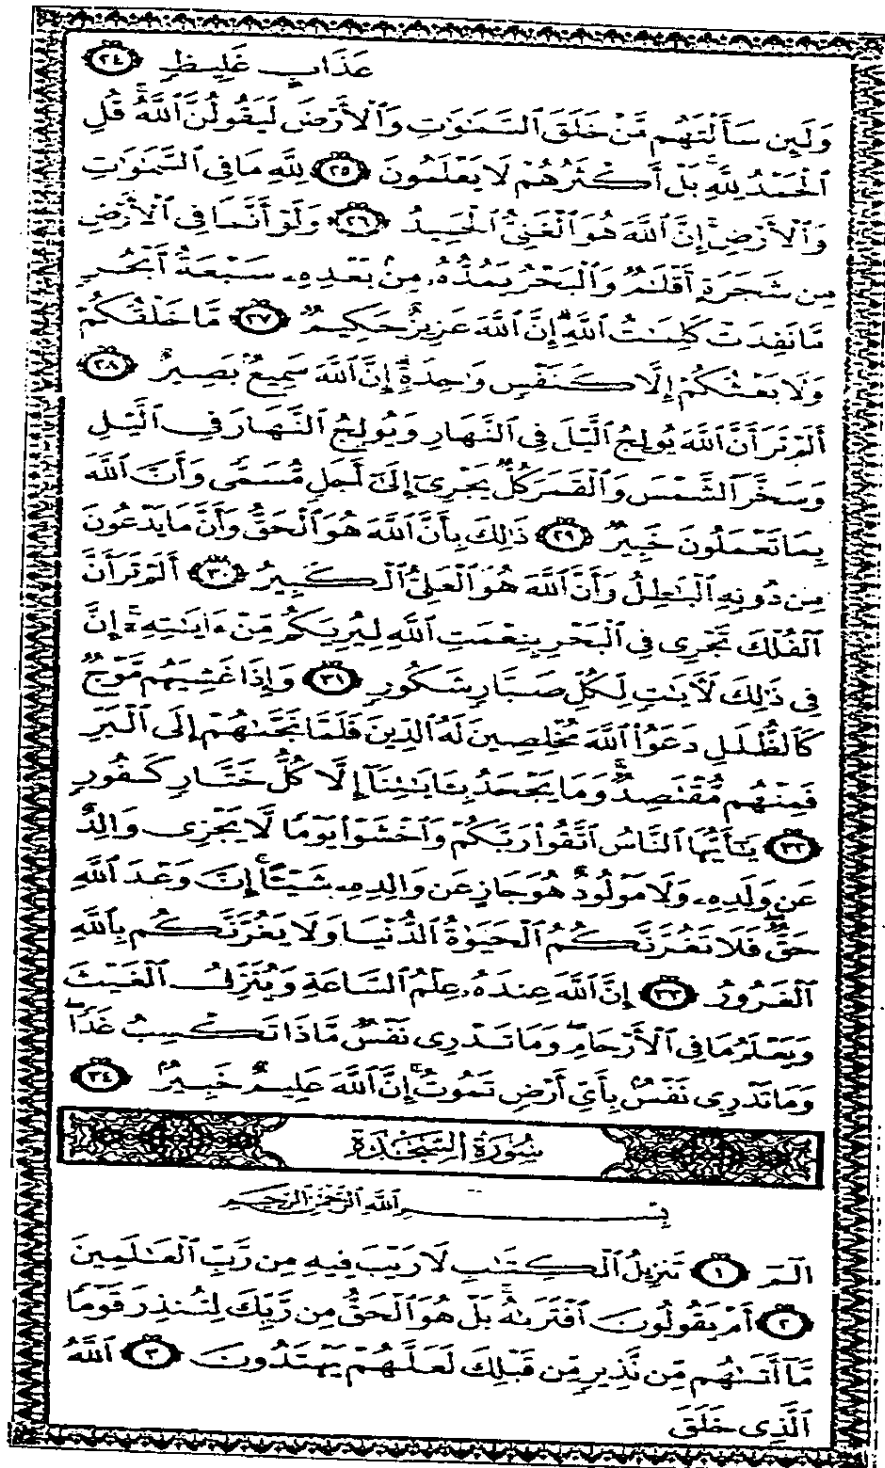 عَذَابٍ غَلِيظٍ ٢٤
وَلَئِن سَأَلْتَهُم مَّنْ خَلَقَ ٱلسَّمَٰوَٰتِ وَٱلْأَرْضَ لَيَقُولُنَّ ٱللَّهُ ۚ قُلِ
ٱلْحَمْدُ لِلَّهِ ۚ بَلْ أَكْثَرُهُمْ لَا يَعْلَمُونَ ٢٥ لِلَّهِ مَا فِى ٱلسَّمَٰوَٰتِ
وَٱلْأَرْضِ ۚ إِنَّ ٱللَّهَ هُوَ ٱلْغَنِىُّ ٱلْحَمِيدُ ٢٦ وَلَوْ أَنَّمَا فِى ٱلْأَرْضِ
مِن شَجَرَةٍ أَقْلَٰمٌ وَٱلْبَحْرُ يَمُدُّهُۥ مِنۢ بَعْدِهِۦ سَبْعَةُ أَبْحُرٍ
مَّا نَفِدَتْ كَلِمَٰتُ ٱللَّهِ ۗ إِنَّ ٱللَّهَ عَزِيزٌ حَكِيمٌ ٢٧ مَّا خَلْقُكُمْ
وَلَا بَعْثُكُمْ إِلَّا كَنَفْسٍ وَٰحِدَةٍ ۗ إِنَّ ٱللَّهَ سَمِيعٌۢ بَصِيرٌ ٢٨
أَلَمْ تَرَ أَنَّ ٱللَّهَ يُولِجُ ٱلَّيْلَ فِى ٱلنَّهَارِ وَيُولِجُ ٱلنَّهَارَ فِى ٱلَّيْلِ
وَسَخَّرَ ٱلشَّمْسَ وَٱلْقَمَرَ كُلٌّ يَجْرِىٓ إِلَىٰٓ أَجَلٍ مُّسَمًّى وَأَنَّ ٱللَّهَ
بِمَا تَعْمَلُونَ خَبِيرٌ ٢٩ ذَٰلِكَ بِأَنَّ ٱللَّهَ هُوَ ٱلْحَقُّ وَأَنَّ مَا يَدْعُونَ
مِن دُونِهِ ٱلْبَٰطِلُ وَأَنَّ ٱللَّهَ هُوَ ٱلْعَلِىُّ ٱلْكَبِيرُ ٣٠ أَلَمْ تَرَ أَنَّ
ٱلْفُلْكَ تَجْرِى فِى ٱلْبَحْرِ بِنِعْمَتِ ٱللَّهِ لِيُرِيَكُم مِّنْ ءَايَٰتِهِۦٓ ۚ إِنَّ
فِى ذَٰلِكَ لَءَايَٰتٍ لِّكُلِّ صَبَّارٍ شَكُورٍ ٣١ وَإِذَا غَشِيَهُم مَّوْجٌ
كَٱلظُّلَلِ دَعَوُا۟ ٱللَّهَ مُخْلِصِينَ لَهُ ٱلدِّينَ فَلَمَّا نَجَّىٰهُمْ إِلَى ٱلْبَرِّ
فَمِنْهُم مُّقْتَصِدٌ ۚ وَمَا يَجْحَدُ بِـَٔايَٰتِنَآ إِلَّا كُلُّ خَتَّارٍ كَفُورٍ
٣٢ يَٰٓأَيُّهَا ٱلنَّاسُ ٱتَّقُوا۟ رَبَّكُمْ وَٱخْشَوْا۟ يَوْمًا لَّا يَجْزِى وَالِدٌ
عَن وَلَدِهِۦ وَلَا مَوْلُودٌ هُوَ جَازٍ عَن وَالِدِهِۦ شَيْـًٔا ۚ إِنَّ وَعْدَ ٱللَّهِ
حَقٌّ ۖ فَلَا تَغُرَّنَّكُمُ ٱلْحَيَوٰةُ ٱلدُّنْيَا وَلَا يَغُرَّنَّكُم بِٱللَّهِ
ٱلْغَرُورُ ٣٣ إِنَّ ٱللَّهَ عِندَهُۥ عِلْمُ ٱلسَّاعَةِ وَيُنَزِّلُ ٱلْغَيْثَ
وَيَعْلَمُ مَا فِى ٱلْأَرْحَامِ ۖ وَمَا تَدْرِى نَفْسٌ مَّاذَا تَكْسِبُ غَدًا ۖ
وَمَا تَدْرِى نَفْسٌۢ بِأَىِّ أَرْضٍ تَمُوتُ ۚ إِنَّ ٱللَّهَ عَلِيمٌ خَبِيرٌۢ ٣٤
سُورَةُ السَّجْدَةِ
بِسْمِ ٱللَّهِ ٱلرَّحْمَٰنِ ٱلرَّحِيمِ
الٓمٓ ١ تَنزِيلُ ٱلْكِتَٰبِ لَا رَيْبَ فِيهِ مِن رَّبِّ ٱلْعَٰلَمِينَ
٢ أَمْ يَقُولُونَ ٱفْتَرَىٰهُ ۚ بَلْ هُوَ ٱلْحَقُّ مِن رَّبِّكَ لِتُنذِرَ قَوْمًا
مَّآ أَتَىٰهُم مِّن نَّذِيرٍ مِّن قَبْلِكَ لَعَلَّهُمْ يَهْتَدُونَ ٣ ٱللَّهُ
ٱلَّذِى خَلَقَ